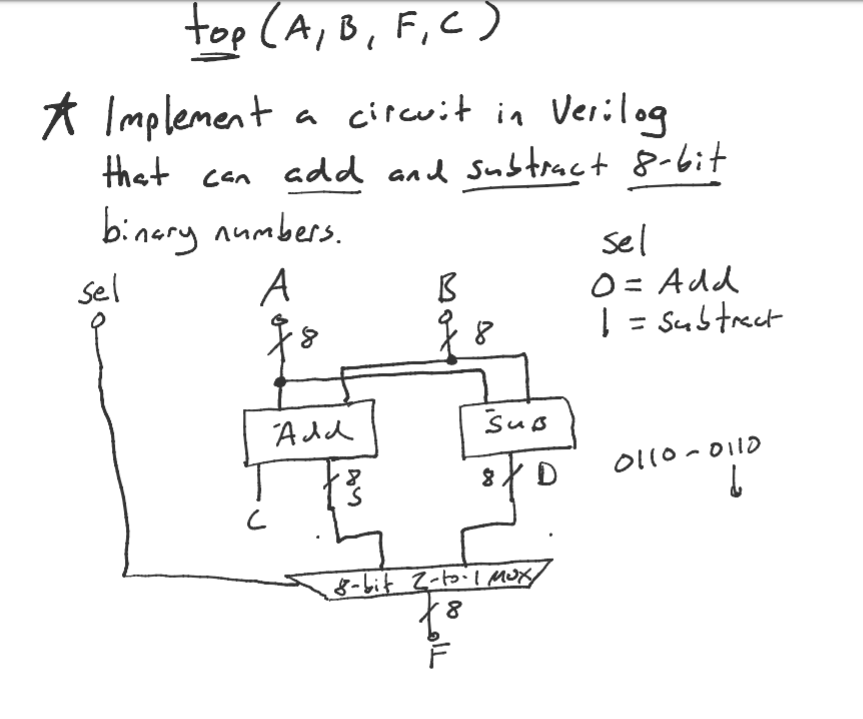 top (A, B, F, C)
★ Implement a circuit in Verilog
that can add and subtract 8-bit
binary numbers.
sel
0 = Add
1 = Subtract
sel A B
8 8
Add Sub
0110 - 0110
C 8 S 8 D
8-bit 2-to-1 MUX
8
F